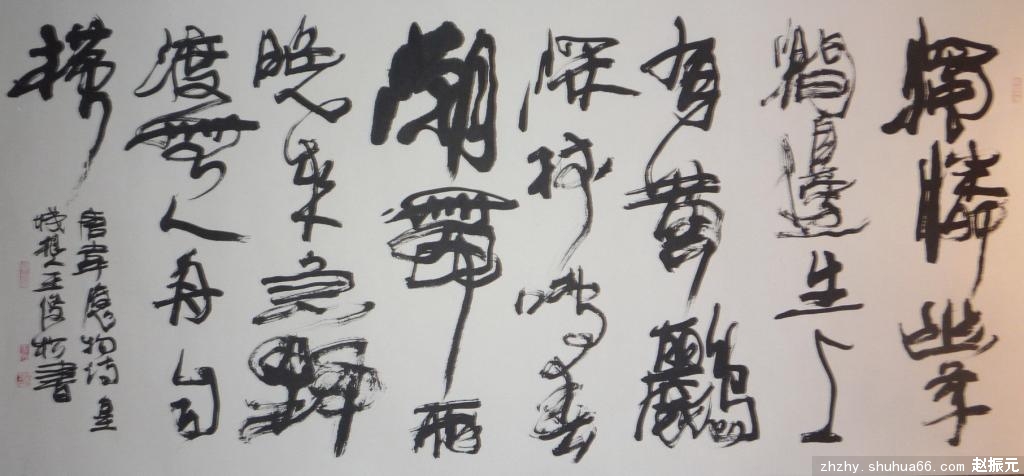 獨憐幽草
澗邊生上
有黃鸝
深樹鳴春
潮帶雨
晚來急野
渡無人舟自
橫
唐韋應物詩 皇
城根人王俊書
zhzhy.shuhua66.com 赵振元